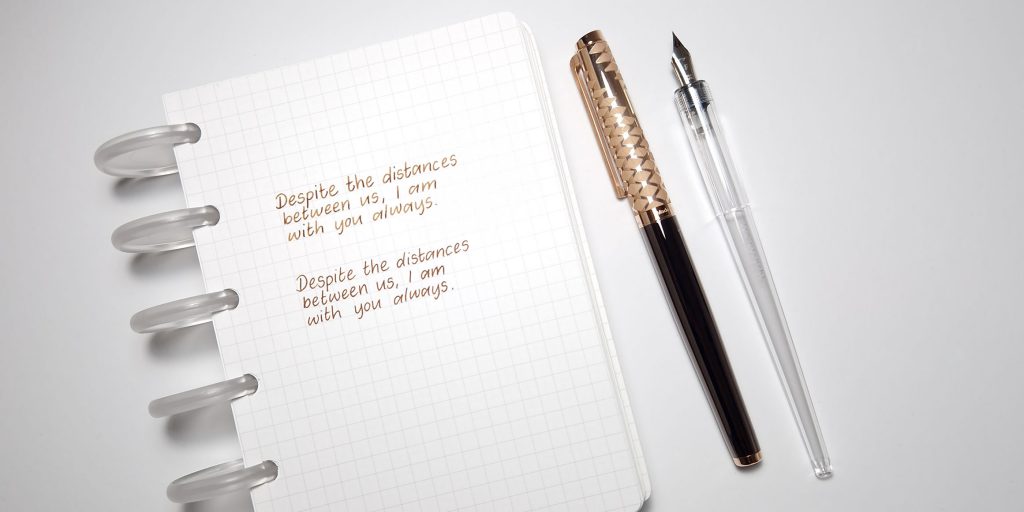 Despite the distances
between us, I am
with you always.
Despite the distances
between us, I am
with you always.